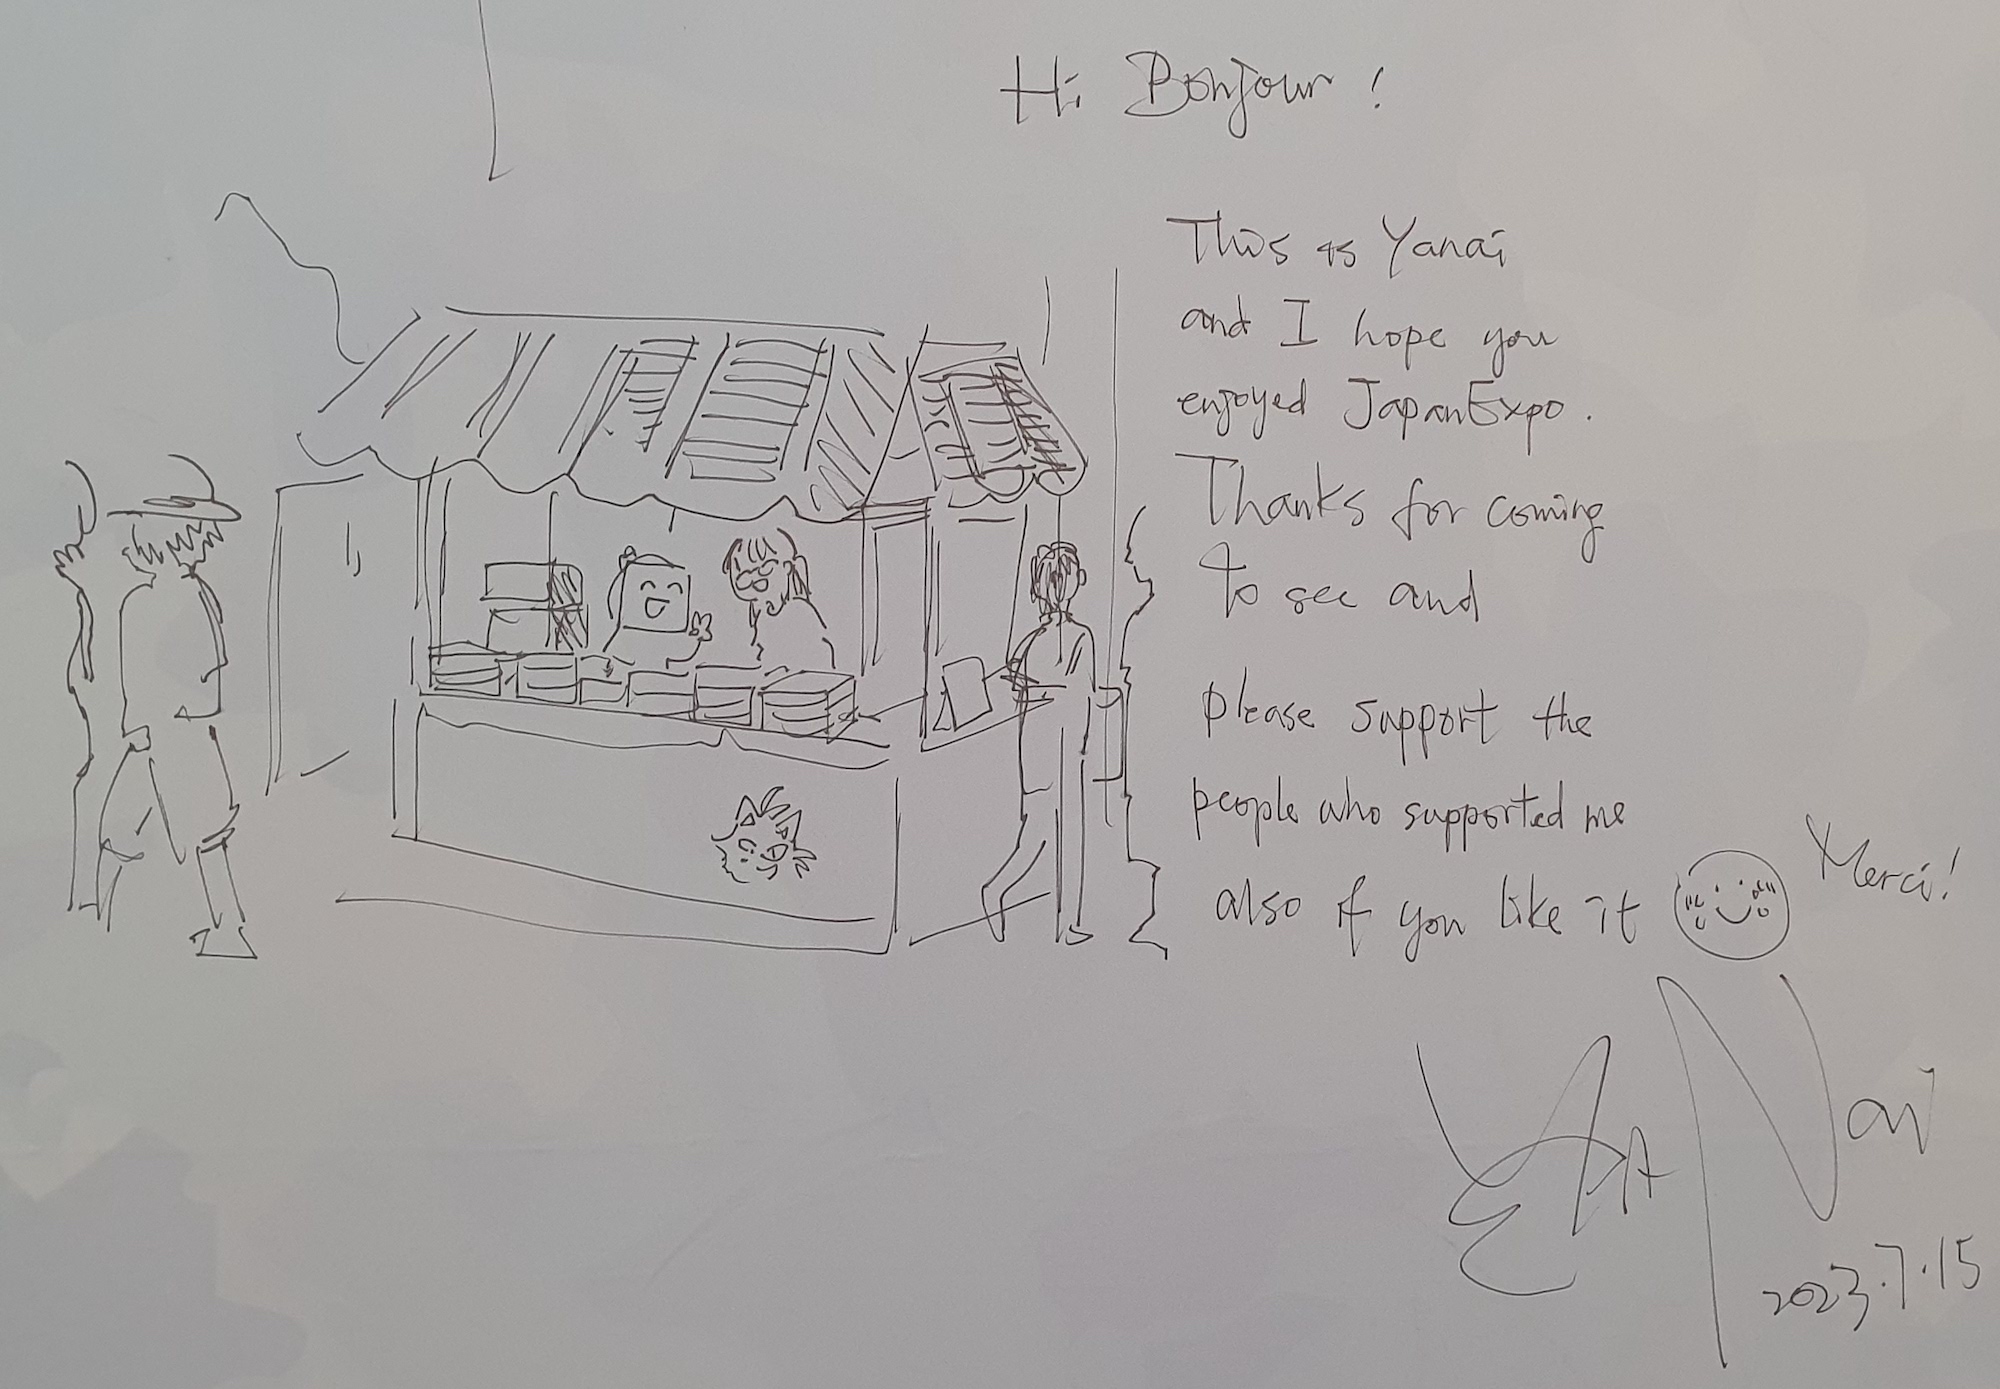 Hi Bonjour!
This is Yanai
and I hope you
enjoyed JapanExpo.
Thanks for coming
to see and
please support the
people who supported me
also if you like it
Merci!
YANai
2023.7.15